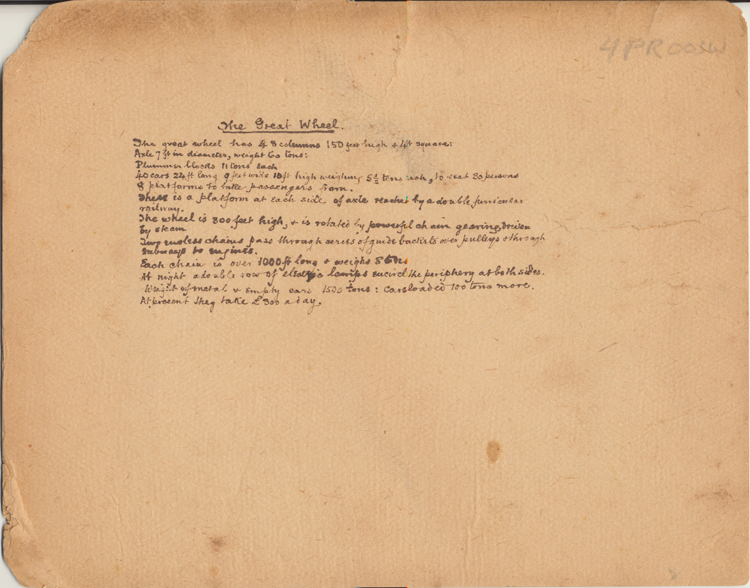 4PROOSW
The Great Wheel.
The great wheel has 4 3 columns 150 feet high & 4ft square:
Axle 7 ft in diameter, weight 60 tons:
Plummer blocks 11 tons each
40 cars 24ft long 9 feet wide 10 ft high weighing 5½ tons each, to seat 30 persons
8 platforms to take passengers from.
There is a platform at each side of axle reached by a double funicular
railway.
The wheel is 300 feet high, & is rotated by powerful chain gearing, driven
by steam
Two endless chains pass through series of guide brackets over pulleys & through
subways to engines.
Each chain is over 1000 ft long & weighs
At night a double row of electric lamps encircl the periphery at both sides.
Weight of metal & empty cars 1500 tons: Cars loaded 100 tons more.
At present they take £300 a day.